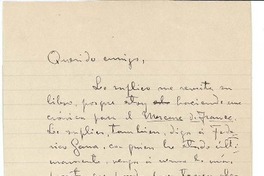 Querido amigo,
Le suplico me remita su
libro, porque estoy haciendo una
crónica para el Mercure de France.
Le suplico, también, diga a Fede-
rico Gana, con quien he estado últi-
mamente, venga a verme lo más